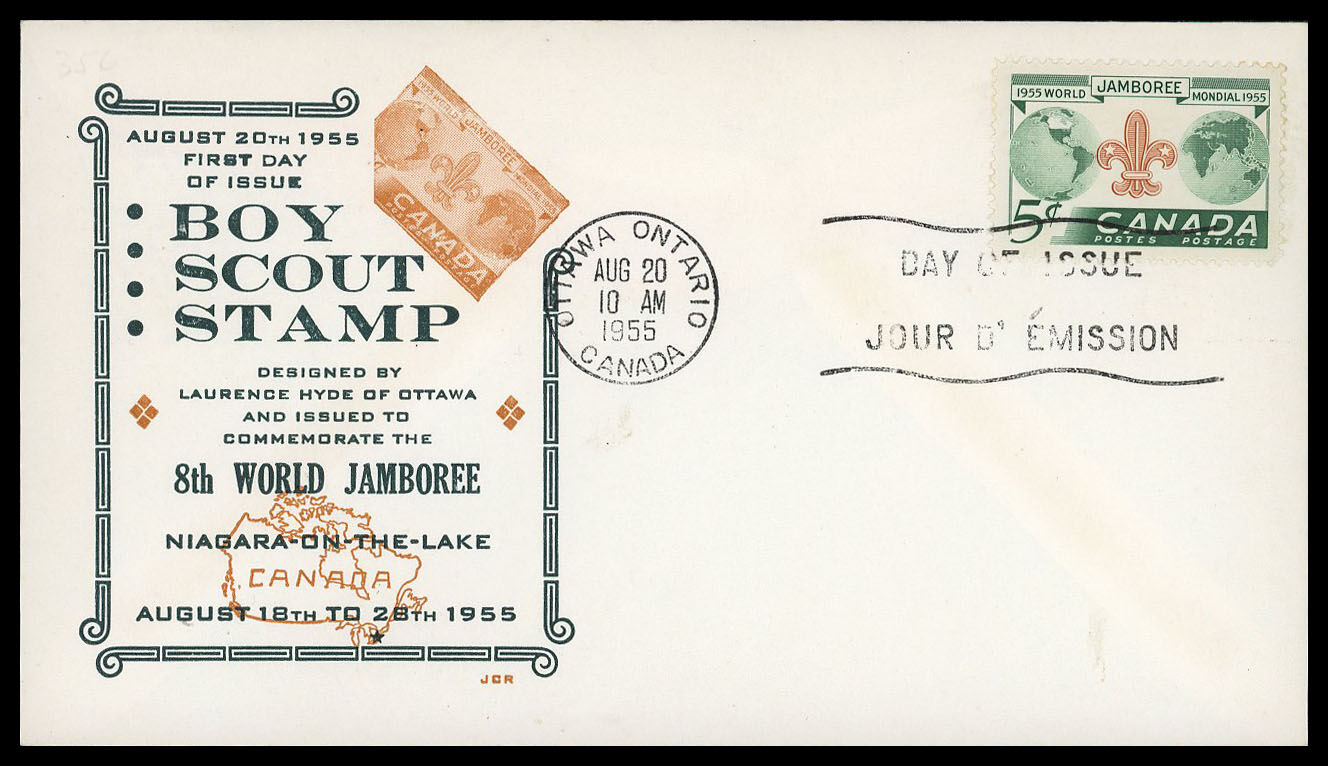 35c
AUGUST 20TH 1955
FIRST DAY
OF ISSUE
BOY
SCOUT
STAMP
DESIGNED BY
LAURENCE HYDE OF OTTAWA
AND ISSUED TO
COMMEMORATE THE
8th WORLD JAMBOREE
NIAGARA-ON-THE-LAKE
CANADA
AUGUST 18TH TO 28TH 1955
JCR
1955 WORLD JAMBOREE MONDIAL 1955
CANADA
POSTES POSTAGE
OTTAWA ONTARIO
AUG 20
10 AM
1955
CANADA
1955 WORLD JAMBOREE MONDIAL 1955
5¢ CANADA
POSTES POSTAGE
DAY OF ISSUE
JOUR D' ÉMISSION